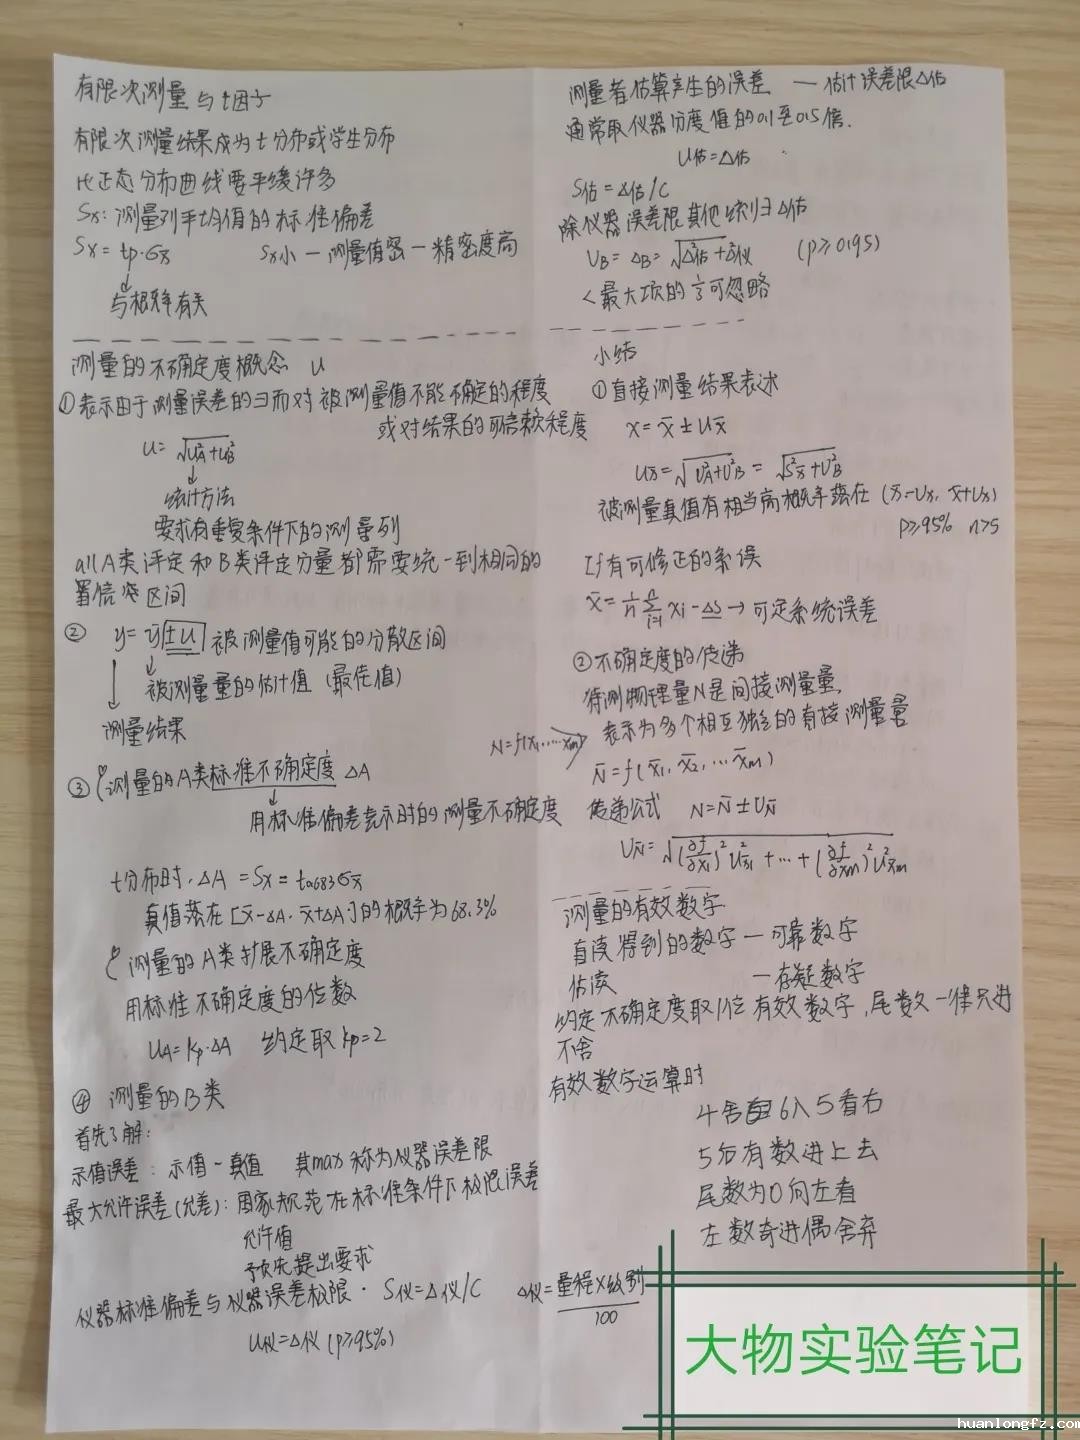 有限次测量与t因子
有限次测量结果成为t分布或学生分布
比正态分布曲线要平缓许多
Sx̄:测量列平均值的标准偏差
Sx̄=tp·σx̄  Sx̄小—测量值密—精密度高
与概率有关
测量的不确定度概念 U
①表示由于测量误差的∃而对被测量值不能确定的程度
或对结果的可信赖程度
U=√(U²A+U²B)
统计方法
要求有重复条件下的测量列
all A类评定和B类评定分量都需要统一到相同的
置信区间
② y=ȳ±U 被测量值可能的分散区间
被测量量的估计值(最佳值)
测量结果
③测量的A类标准不确定度 ΔA
用标准偏差表示时的测量不确定度
t分布时,ΔA=Sx̄=t0.683σx̄
真值落在[x̄-ΔA, x̄+ΔA]的概率为68.3%
测量的A类扩展不确定度
用标准不确定度的倍数
UA=kp·ΔA 约定取kp=2
④ 测量的B类
首先了解:
示值误差:示值-真值 其max称为仪器误差限
最大允许误差(允差):国家规范在标准条件下极限误差
允许值
预先提出要求
仪器标准偏差与仪器误差极限· S仪=Δ仪/C Δ仪=量程×级别/100
U仪=Δ仪(p≥95%)
测量者估算产生的误差 —估计误差限Δ估
通常取仪器分度值的0.1至0.5倍.
U估=Δ估
S估=Δ估/C
除仪器误差限其他归Δ估
UB=ΔB=√(Δ²估+Δ²仪) (p≥0.95)
<最大项的⅓可忽略
小结
①直接测量结果表述
x=x̄±Ux̄
Ux̄=√(U²A+U²B)=√(S²x̄+U²B)
被测量真值有相当高概率落在(x̄-Ux, x̄+Ux)
p≥95% n>5
If有可修正的系误
x̄=1/n Σ(i=1→n) xi-Δs→可定系统误差
②不确定度的传递
待测物理量N是间接测量量,
表示为多个相互独立的直接测量量
N=f(x1,...xm)
N̄=f(x̄1,x̄2,...x̄m)
传递公式 N=N̄±UN̄
UN̄=√((∂f/∂x1)²U²x̄1+...+(∂f/∂xm)²U²x̄m)
测量的有效数字
直读得到的数字—可靠数字
估读 —存疑数字
约定不确定度取1位有效数字,尾数一律只进
不舍
有效数字运算时
4舍6入5看右
5后有数进上去
尾数为0向左看
左数奇进偶舍弃
大物实验笔记
huanlongfz.com